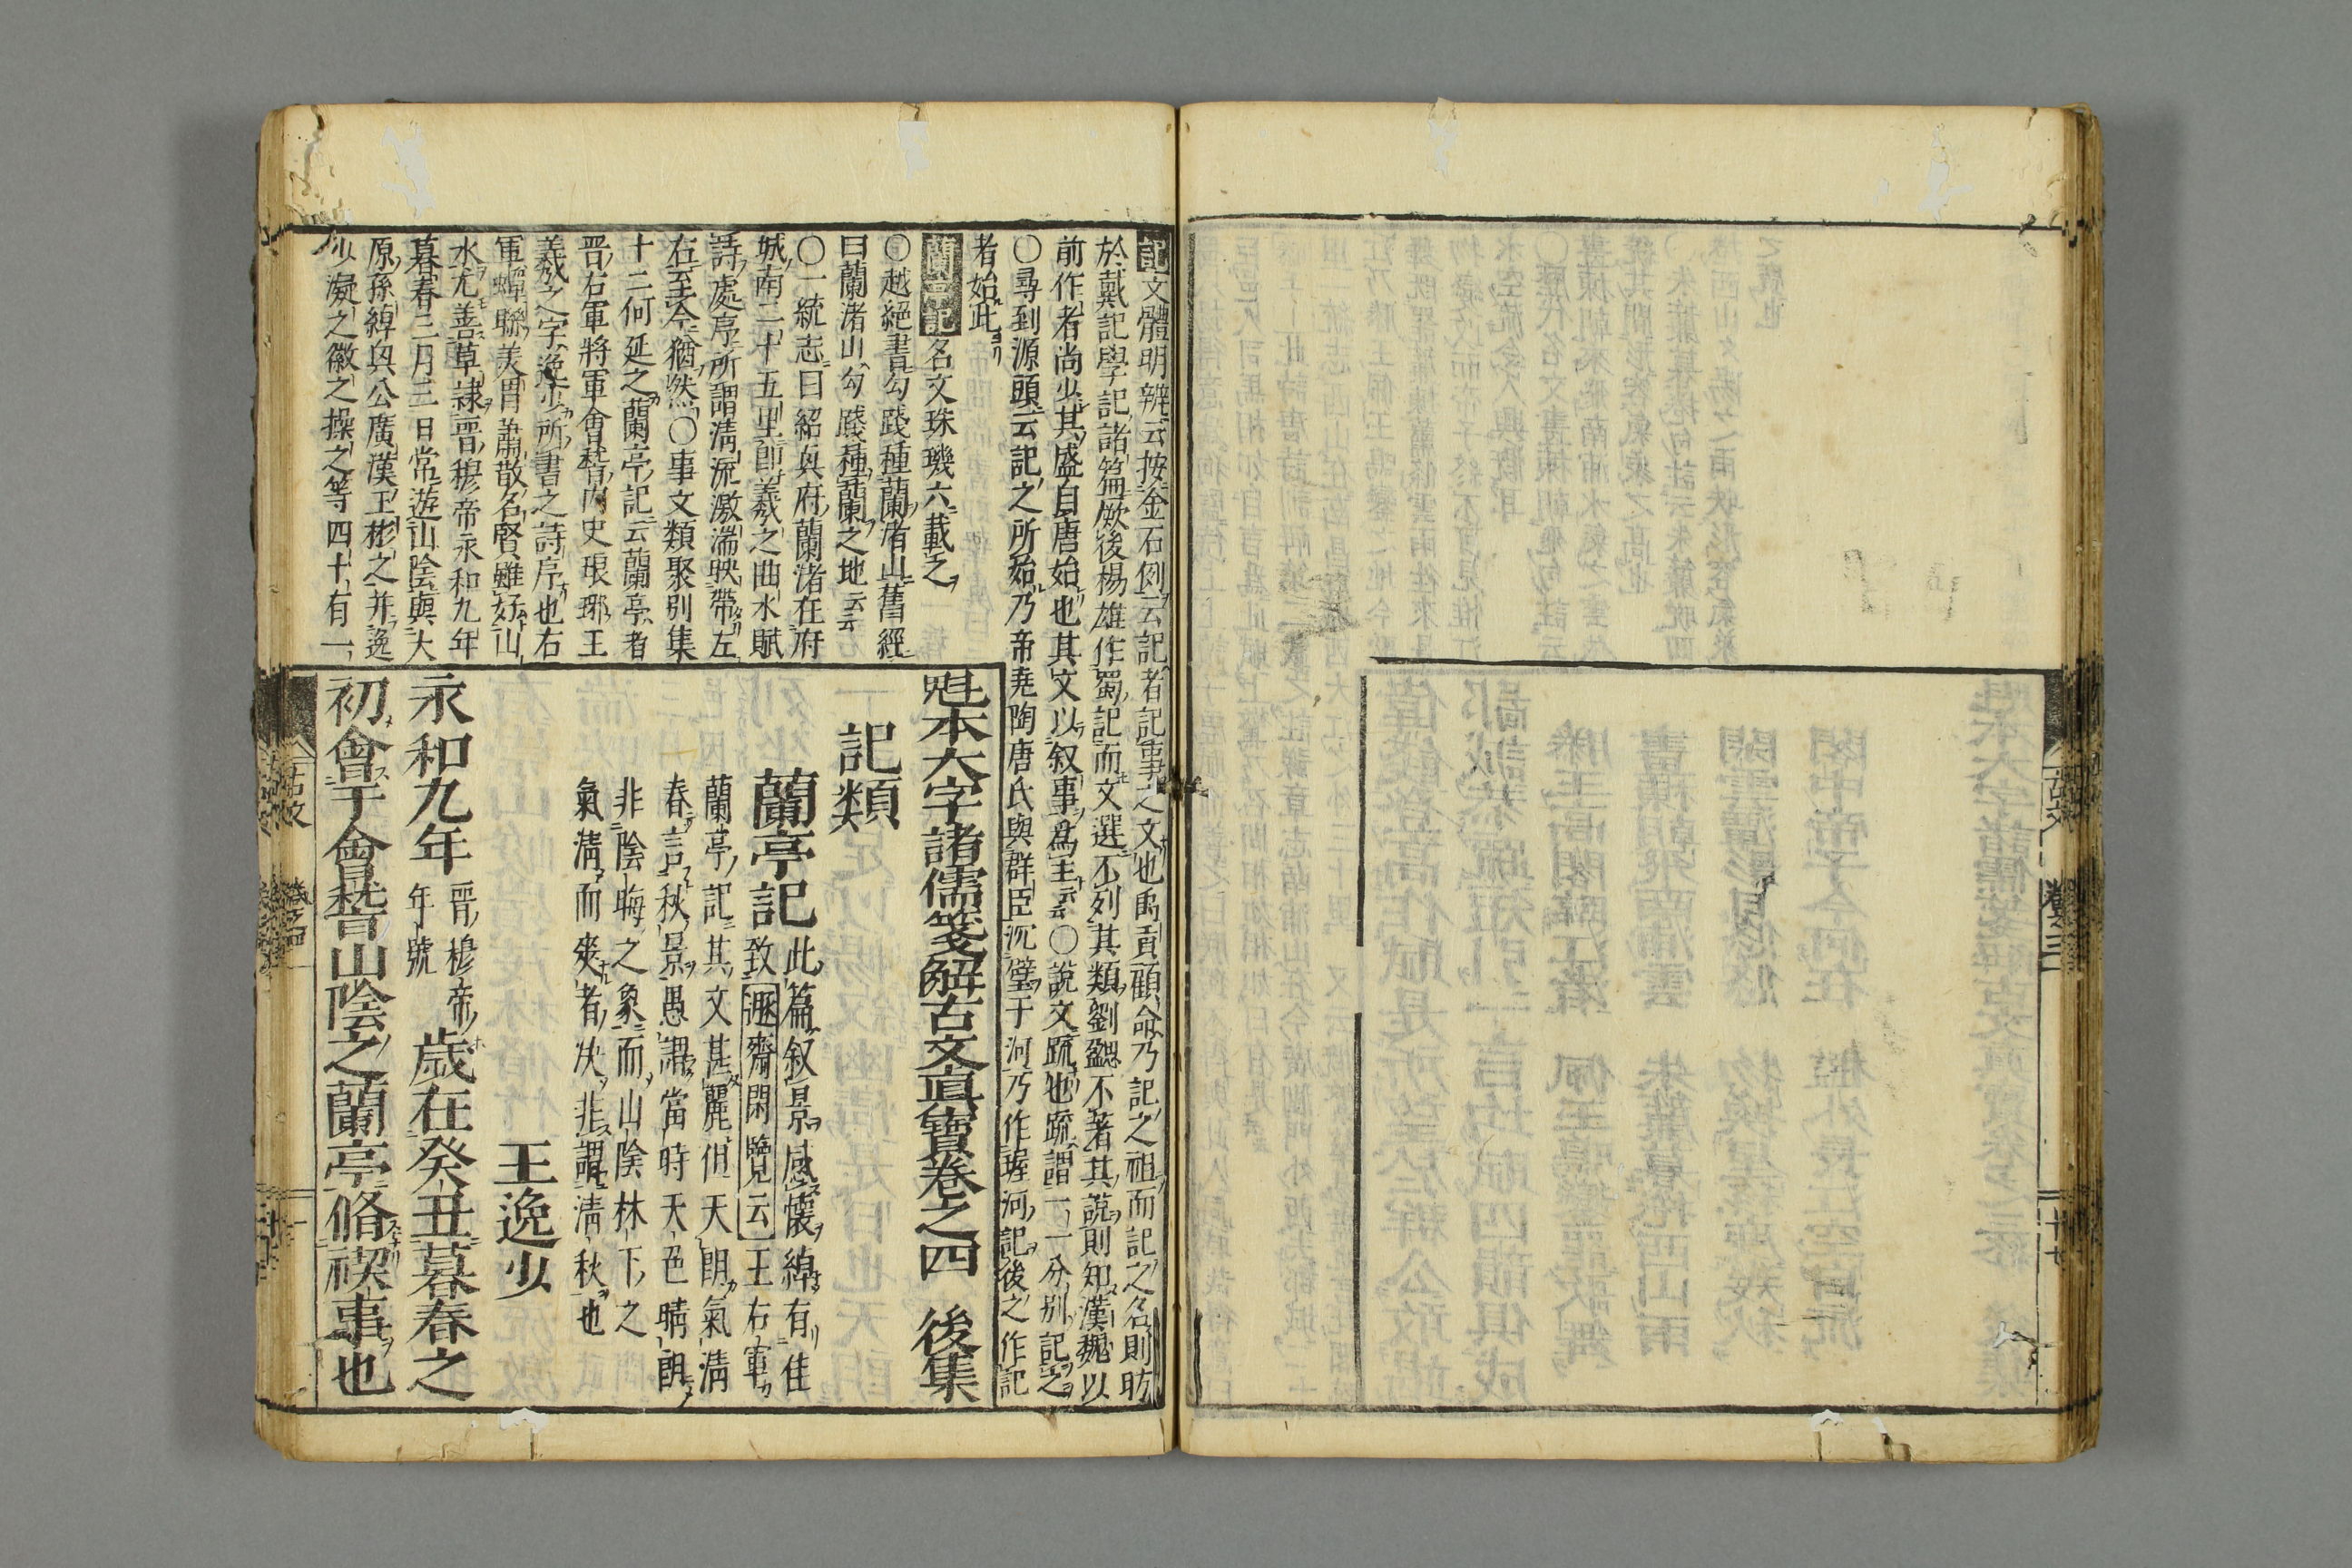 古文
卷之三
十七
記文體明辨云按金石例云記者記事之文也禹貢顧命乃記之祖而記之名則昉
於戴記學記諸篇厥後楊雄作蜀記而文選不列其類劉勰不著其說則知漢魏以
前作者尚少其盛自唐始也其文以叙事爲主云云〇說文疏也疏謂一一分別記之
〇尋到源頭云記之所始乃帝堯陶唐氏與群臣沉璧于河乃作握河記後之作記
者始此
蘭亭記名文珠璣六載之
〇越絕書勾踐種蘭渚山舊經
曰蘭渚山勾踐種蘭之地云云
〇一統志曰紹興府蘭渚在府
城南二十五里卽羲之曲水賦
詩處序所謂淸流激湍映帶左
右至今猶然〇事文類聚別集
十二何延之蘭亭記云蘭亭者
晋右軍將軍會稽內史琅琊王
羲之字逸少所書之詩序也右
軍蟬聯美胄蕭散名賢雖好山
水尤善草隷晋穆帝永和九年
暮春三月三日常遊山陰與大
原孫綽與公廣漢王彬之并逸
少凝之徽之操之等四十有一
魁本大字諸儒箋解古文眞寶卷之四　後集
記類
蘭亭記
此篇叙景感懷綽有佳
致遯齋閑覽云王右軍
蘭亭記其文甚麗但天朗氣淸
春言秋景愚謂當時天色晴朗
非陰晦之象而山陰林下之
氣淸而爽者决非謂淸秋也
王逸少
永和九年晋穆帝年號歲在癸丑暮春之
初會于會稽山陰之蘭亭脩禊事也
古文
卷之四